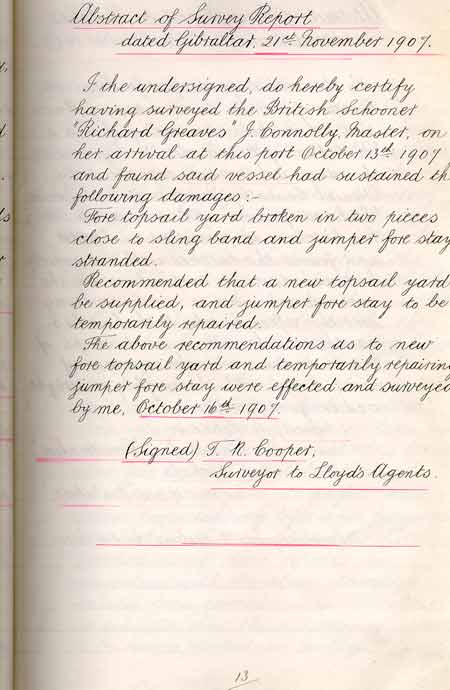 Abstract of Survey Report
dated Gibraltar, 21st November 1907.
I the undersigned, do hereby certify
having surveyed the British Schooner
"Richard Greaves" J. Connolly, Master, on
her arrival at this port October 13th 1907
and found said vessel had sustained th
following damages:-
Fore topsail yard broken in two pieces
close to sling band and jumper fore stay
stranded.
Recommended that a new topsail yard
be supplied, and jumper fore stay to be
temporarily repaired.
The above recommendations as to new
fore topsail yard and temporarily repairing
jumper fore stay were effected and surveyed
by me, October 16th 1907.
(Signed) T. N. Cooper,
Surveyor to Lloyds Agents.
13